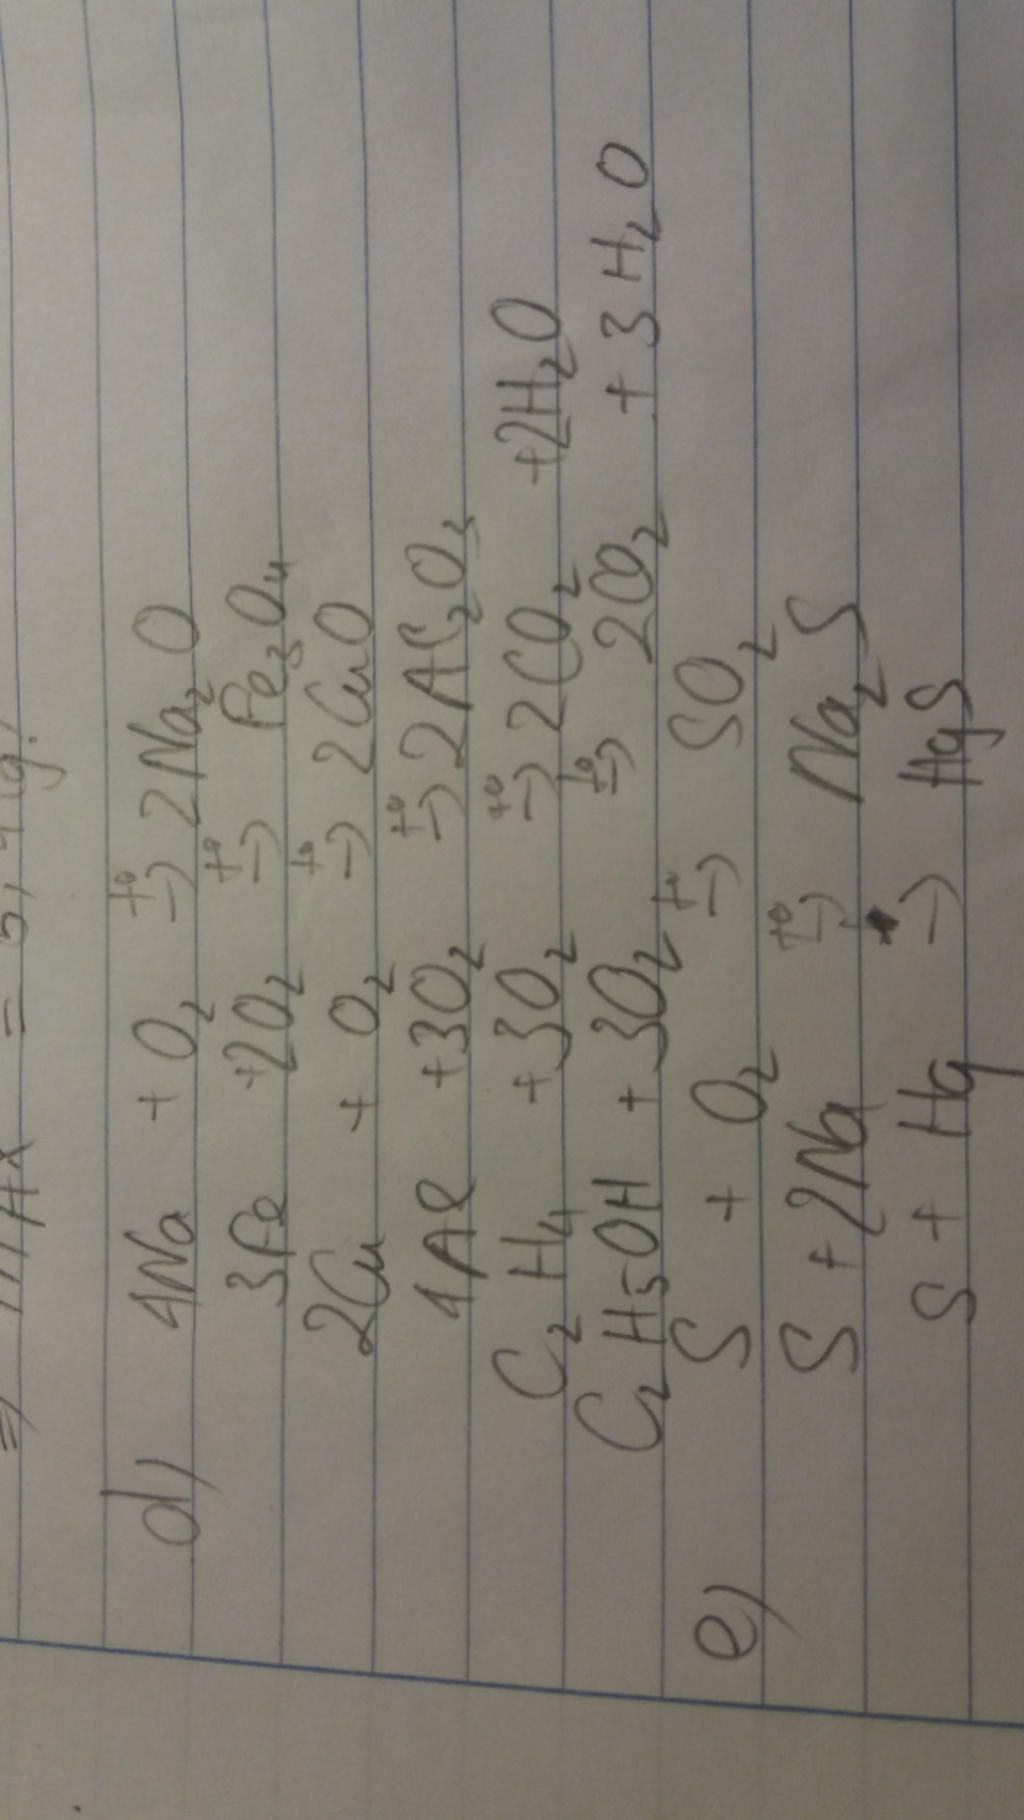 d) 4Na + O₂ →(t°) 2Na₂O
3Fe +2O₂ →(t°) Fe₃O₄
2Cu + O₂ →(t°) 2CuO
4Al +3O₂ →(t°) 2Al₂O₃
C₂H₄ +3O₂ →(t°) 2CO₂ +2H₂O
C₂H₅OH + 3O₂ →(t°) 2CO₂ + 3H₂O
e) S + O₂ →(t°) SO₂
S +2Na →(t°) Na₂S
S + Hg → HgS